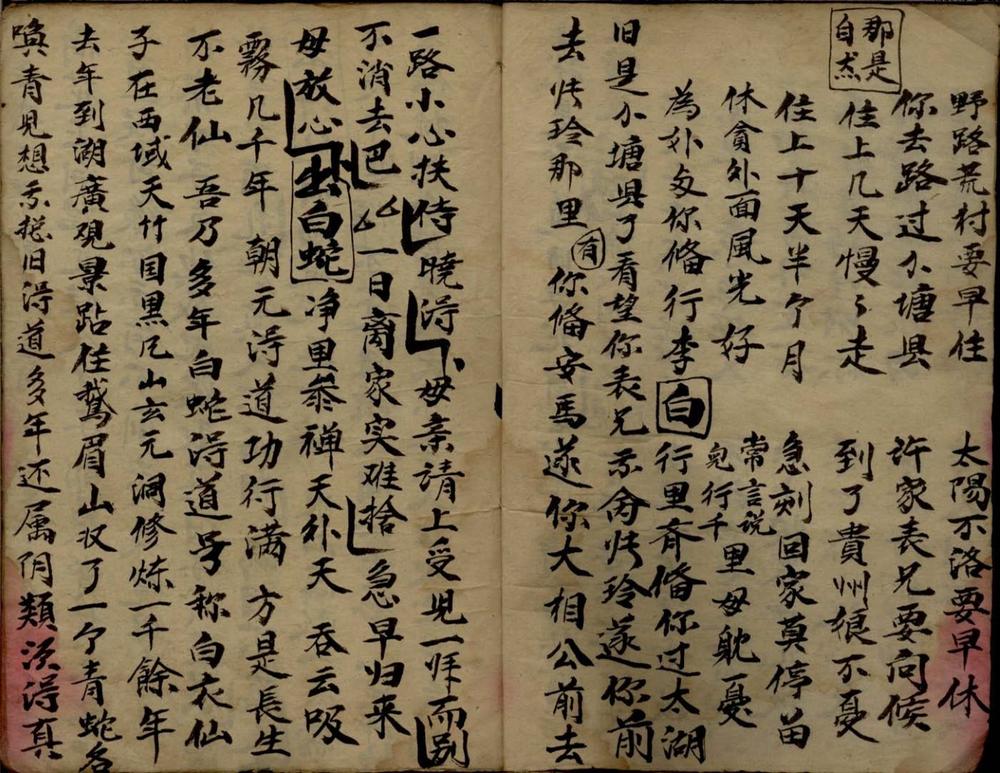 野路荒村要早住　太陽不洛要早休
你去路过小塘县　许家表兄要问候
那是自杰
住上几天慢〻走　到了貴州娘不憂
住上十天半个月　急刻回家莫停苗
休貪外面風光好　常言说兒行千里母躭憂
為外女你俻行李　白　行里齐俻你过太湖
旧是小塘县了看望你表兄　你前
去 玲那里　有　你俻安馬遂你大相公前去
一路小心扶侍　曉淂　母亲請上受児一拜而别
不消去巴　一日离家实难捨　急早归来
母放心　出白蛇　净里叅禅天外天　吞云吸
霧几千年　朝元淂道功行满　方是長生
不老仙　吾乃多年白蛇淂道号称白衣仙
子在西域天竹国黑凡山玄元洞修炼一千餘年
去年到湖廣观景跕住鵞眉山収了一个青蛇名
唤青児想 旧淂道多年还属阴類 淂真